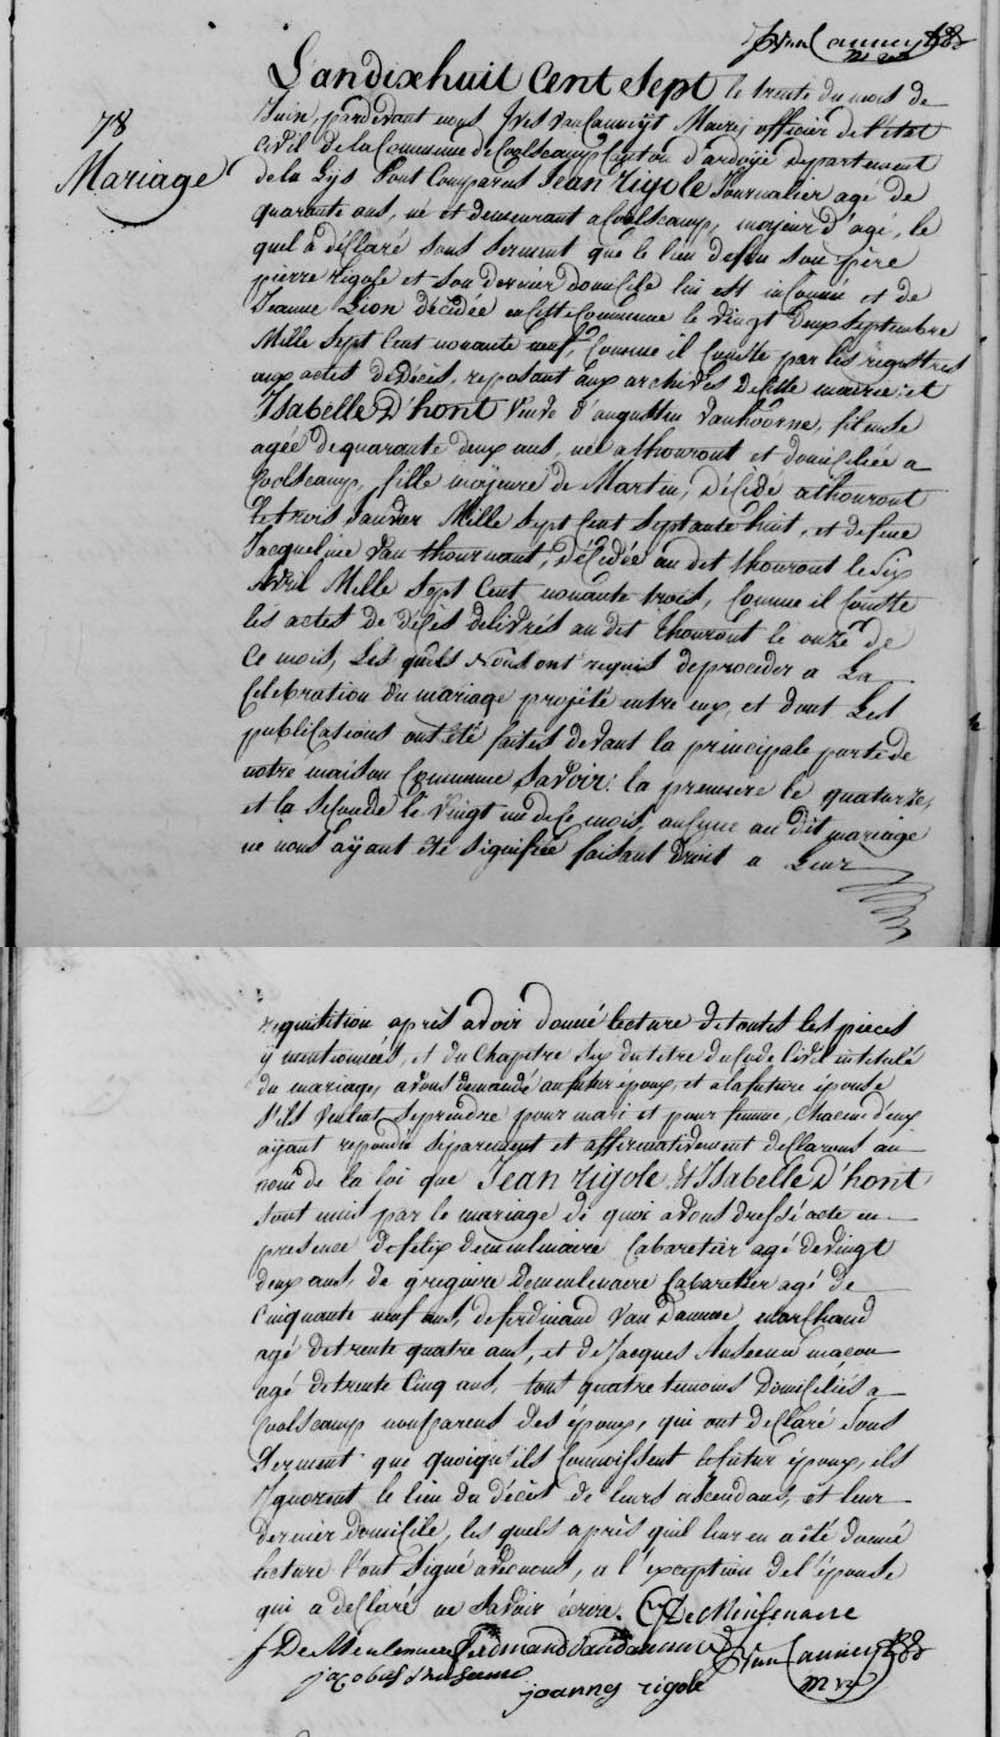 L'an dix huit Cent Sept le trente du mois de
78
Mariage
Juin, pardevant nous Yves VanCanneijt Maire, officier de l'état
Civil de la Commune de Coolscamp Canton d'ardoije departement
de la Lijs sont Comparus Jean rigole Journalier agé de
quarante ans, né et demeurant a Coolscamp, majeur d'agé, le
quel à déClaré sous serment que le lieu defeu son père
pierre rigole et son dernier domiCile lui est inConnu et de
Jeanne Lion décédée en Cette Commune le vingt deux Septembre
Mille Sept Cent nonante neuf, Comme il Conste par les régistres
aux actes de décès, reposant aux archives de Cette mairie; et
Isabelle D'hont veuve d'augustin vanhoorne, fileuse
agée de quarante deux ans, née a thouront et domiCiliée a
Coolscamp, fille majeure de Martin, déCédé a thouront
le trois Janvier Mille Sept Cent Septante huit, et de feue
Jacqueline Van thournout, déCédée au dit thouront le Six
Avril Mille Sept Cent nonante trois, Comme il Conste
les actes de déCès delivrés au dit thouront le onze de
Ce mois, Les quels Nous ont requis de proceder a La
Célebration du mariage projété entre eux, et dont Les
publiCations ont été faites devant la principale porte de
notre maison Commune Savoir: la premiere le quatorze,
et la SeConde le vingt un de Ce mois, auCune au dit mariage
ne nous aÿant été Signifiée faisant droit a Leur
requisition après avoir donné lecture de toutes les pieces
ÿ mentionnées, et du Chapitre Six du titre du Code Civil intitulé
du mariage, avons demandé au futur époux, et a la future épouse
s'ils veulent se prendre pour mari et pour femme, Chacun d'eux
aÿant repondu séparement et affirmativement deClarons au
nom de la loi que Jean rigole et Isabelle D'hont
sont unis par le mariage de quoi avons dressé acte en
presence de felix demeulenaire Cabaretier agé de vingt
deux ans, de gregoire Demeulenaere Cabaretier agé de
Cinquante neuf ans, de ferdinand Van Damme marChand
agé de trente quatre ans, et de Jacques maçon
agé de trente Cinq ans, tous quatre temoins DomiCiliés a
Coolscamp non parens des époux, qui ont deClaré sous
Serment que quoiqu'ils Connoissent le futur époux, ils
Ignorent le lieu du décès de leurs ascendans, et leur
dernier domiCile, les quels après qu'il leur en a été donné
lecture l'ont Signé avec nous, a l'éxception de l'épouse
qui a deClaré ne Savoir écrire. De Meulenaere
f De Meulenaere Ferdinand vandamme
joannes rigole